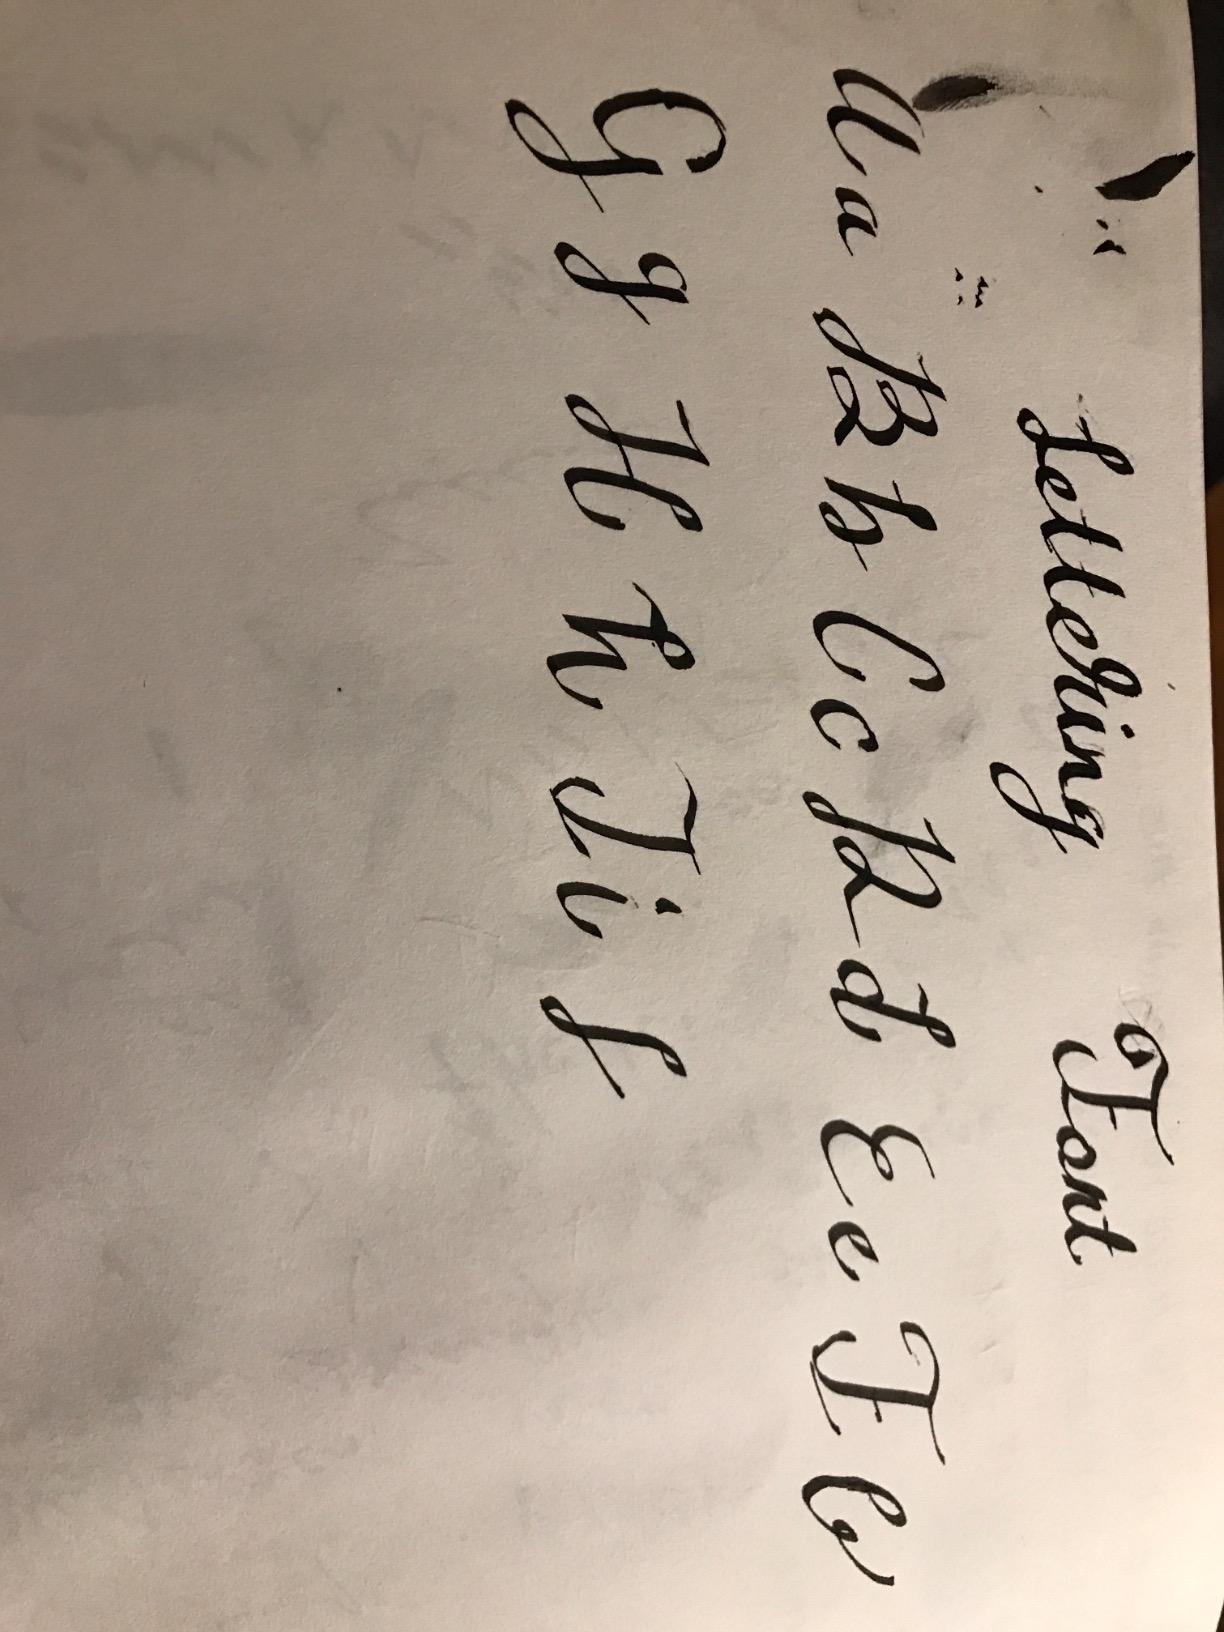 Lettering Font
Aa Bb Cc Dd Ee Ff
Gg Hh Ii J